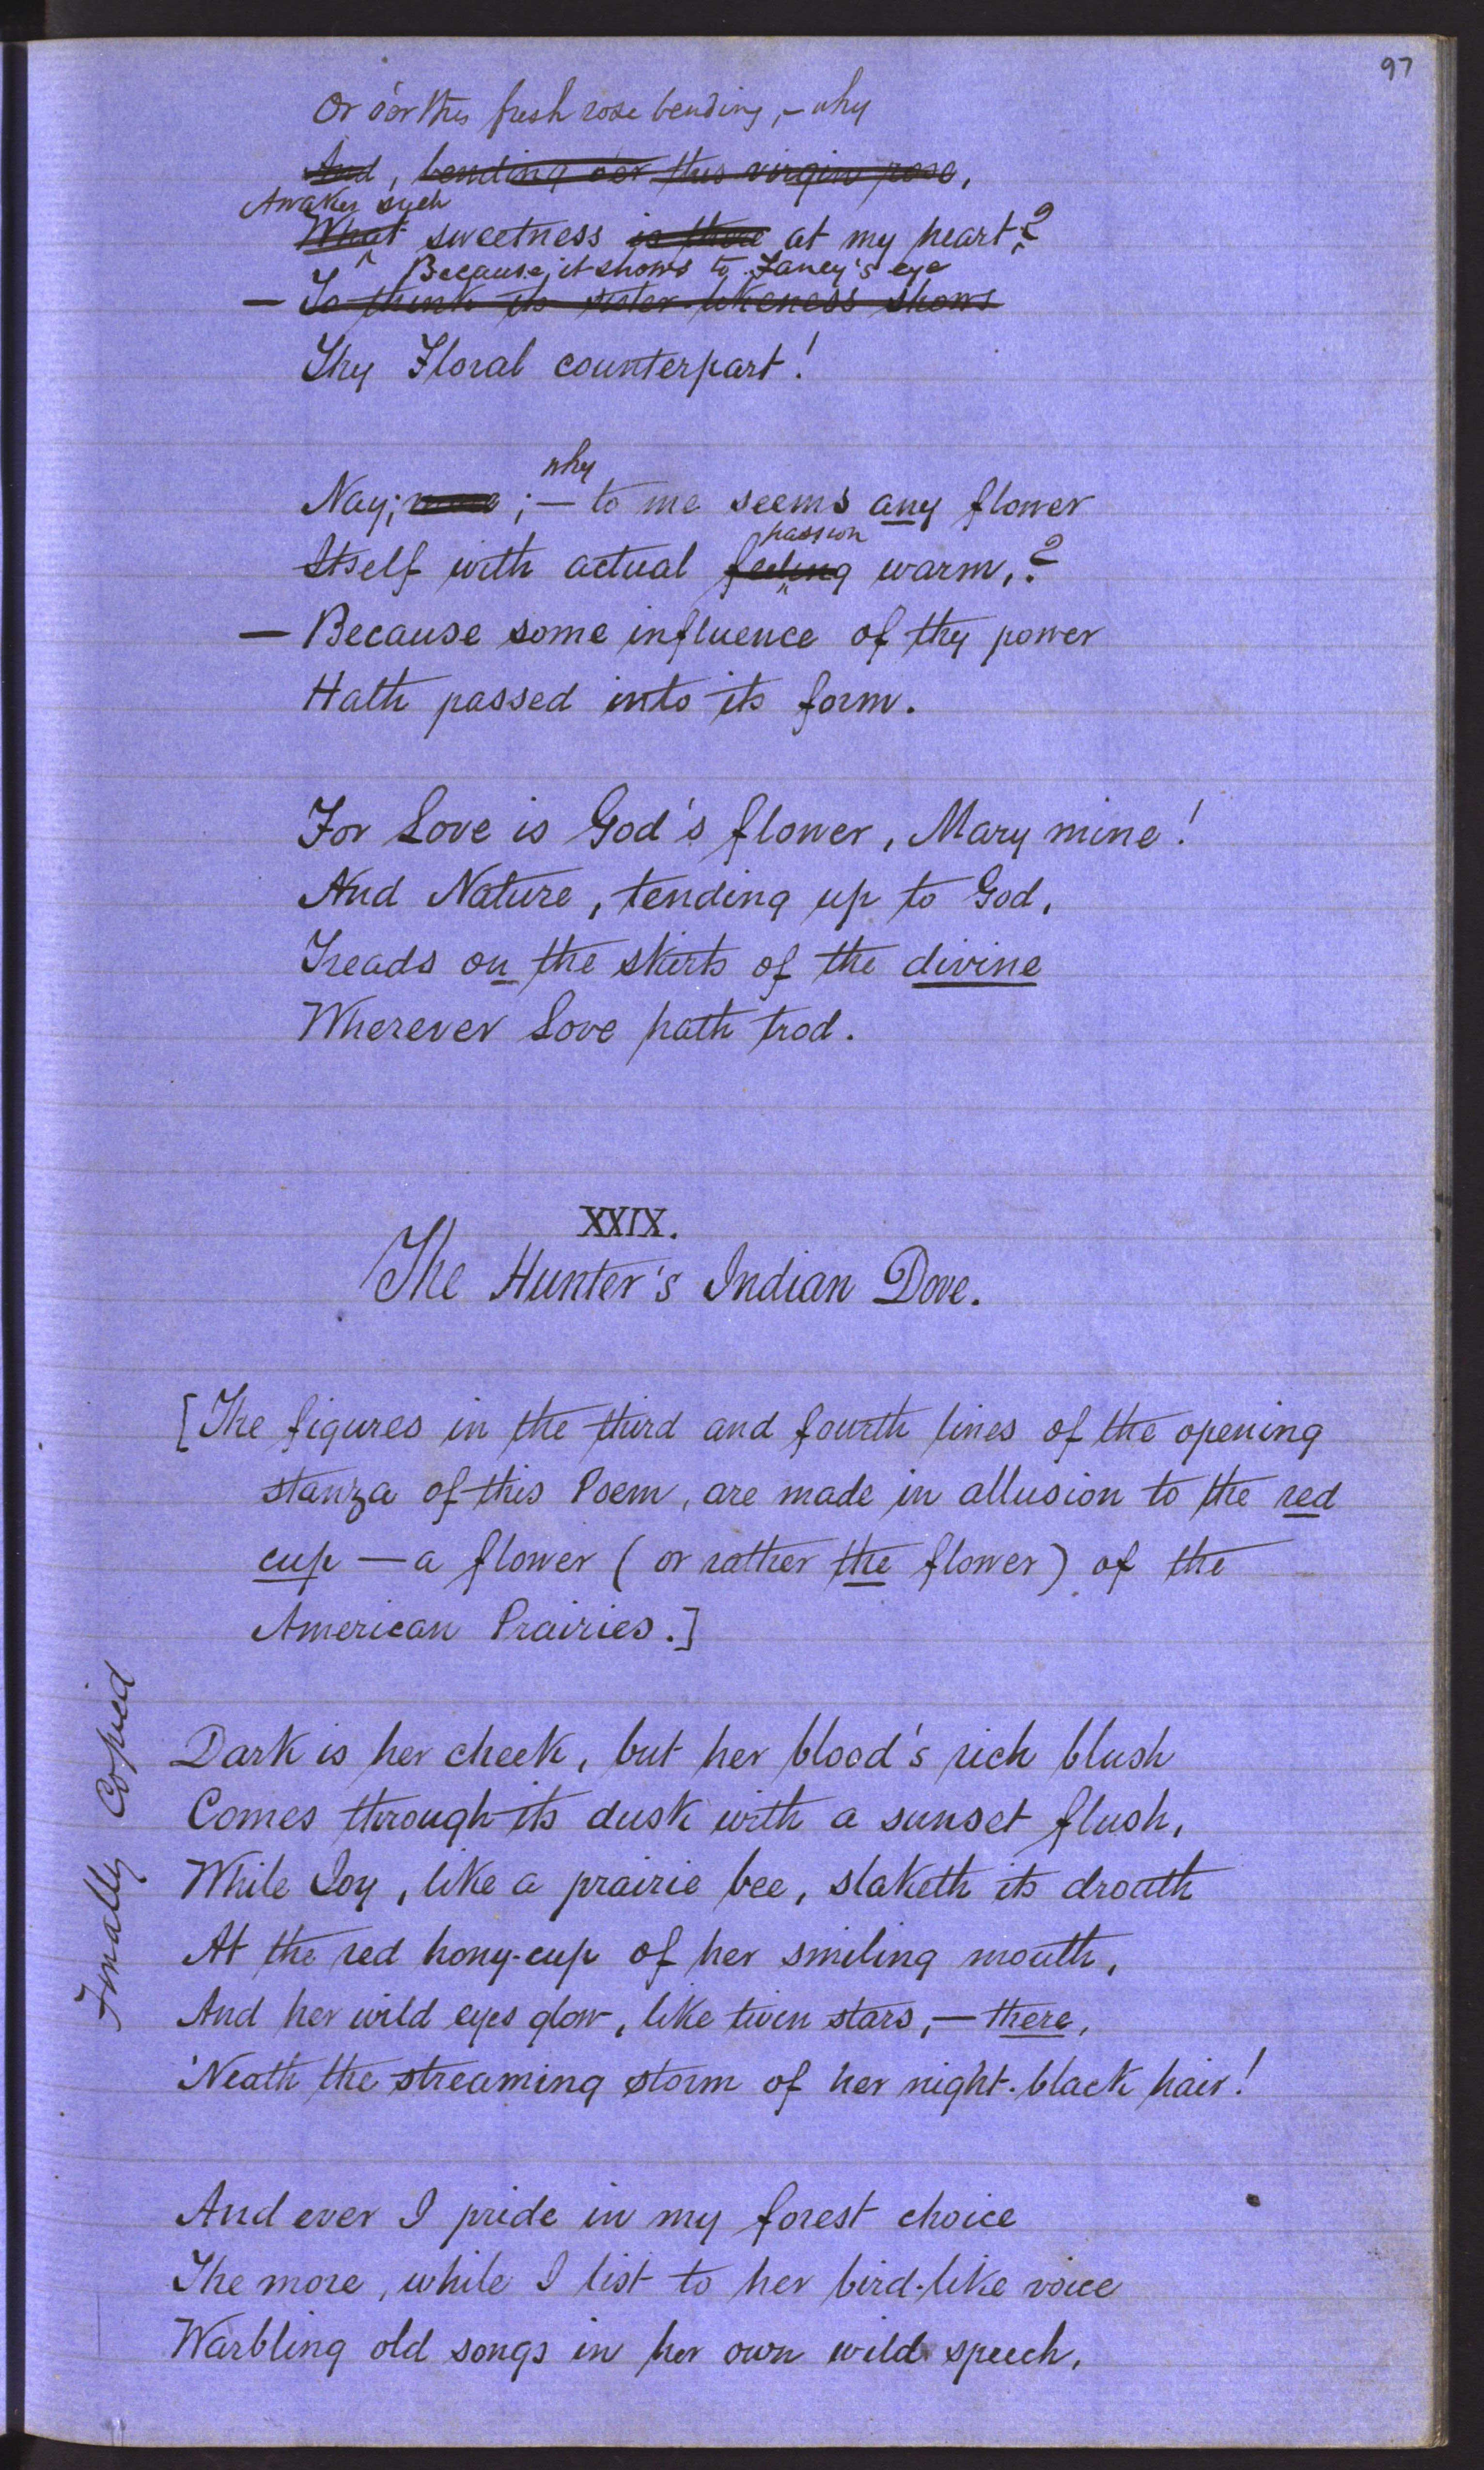 97
Or o'er this fresh rose bending, – why
And, bending o'er this virgin rose,
Awakes such
What sweetness is there at my heart?
Because, it shows to Fancy's eye
— To think its sister-likeness shows
Thy Floral counterpart!
why
Nay; ;— to me seems any flower
passion
Itself with actual feeling warm,?
— Because some influence of thy power
Hath passed into its form.
For Love is God's flower, Mary mine!
And Nature, tending up to God,
Treads on the skirts of the divine
Wherever Love hath trod.
XXIX.
The Hunter's Indian Dove.
[The figures in the third and fourth lines of the opening
stanza of this Poem, are made in allusion to the red
cup — a flower (or rather the flower) of the
American Prairies.]
Finally Copied
Dark is her cheek, but her blood's rich blush
Comes through its dusk with a sunset flush,
While Joy, like a prairie bee, slaketh its drouth
At the red hony-cup of her smiling mouth,
And her wild eyes glow, like twin stars,— there,
'Neath the streaming storm of her night-black hair!
And ever I pride in my forest choice
The more, while I list to her bird-like voice
Warbling old songs in her own wild speech,